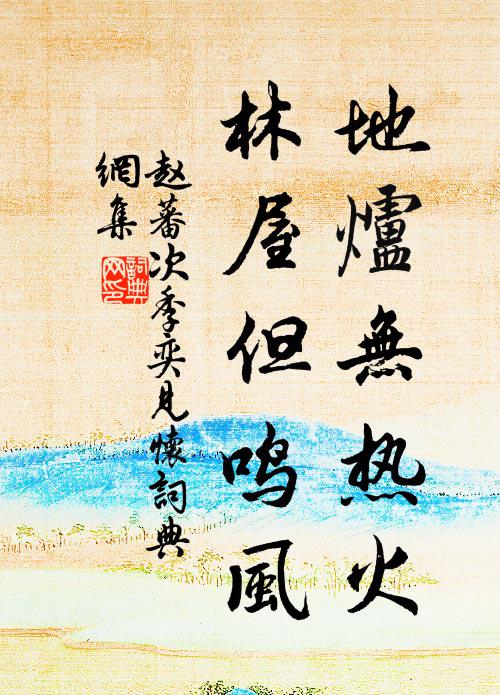 地爐無热火
林屋但鸣風
赵蕃次季奕見懷詞典
網集
詞典
网印